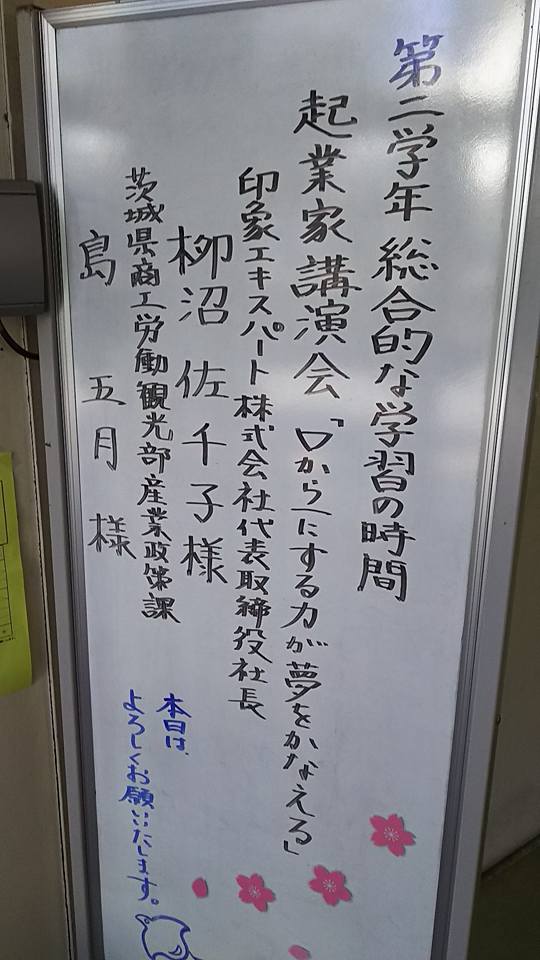 第二学年 総合的な学習の時間
起業家講演会「口から一にする力が夢をかなえる」
印象エキスパート株式会社代表取締役社長
柳沼 佐千子様
茨城県商工労働観光部産業政策課
島 五月 様
本日は、
よろしくお願いいたします。